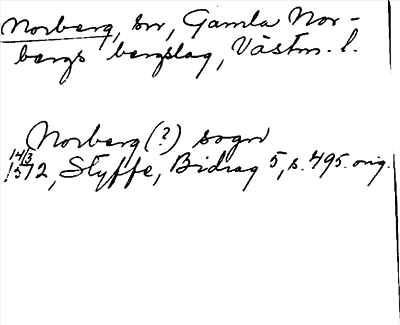 Norberg, sn, Gamla Nor-
bergs bergslag, Västm. l.
Norberg (?) sogn
14/3
1512, Styffe, Bidrag 5, s. 495. orig.